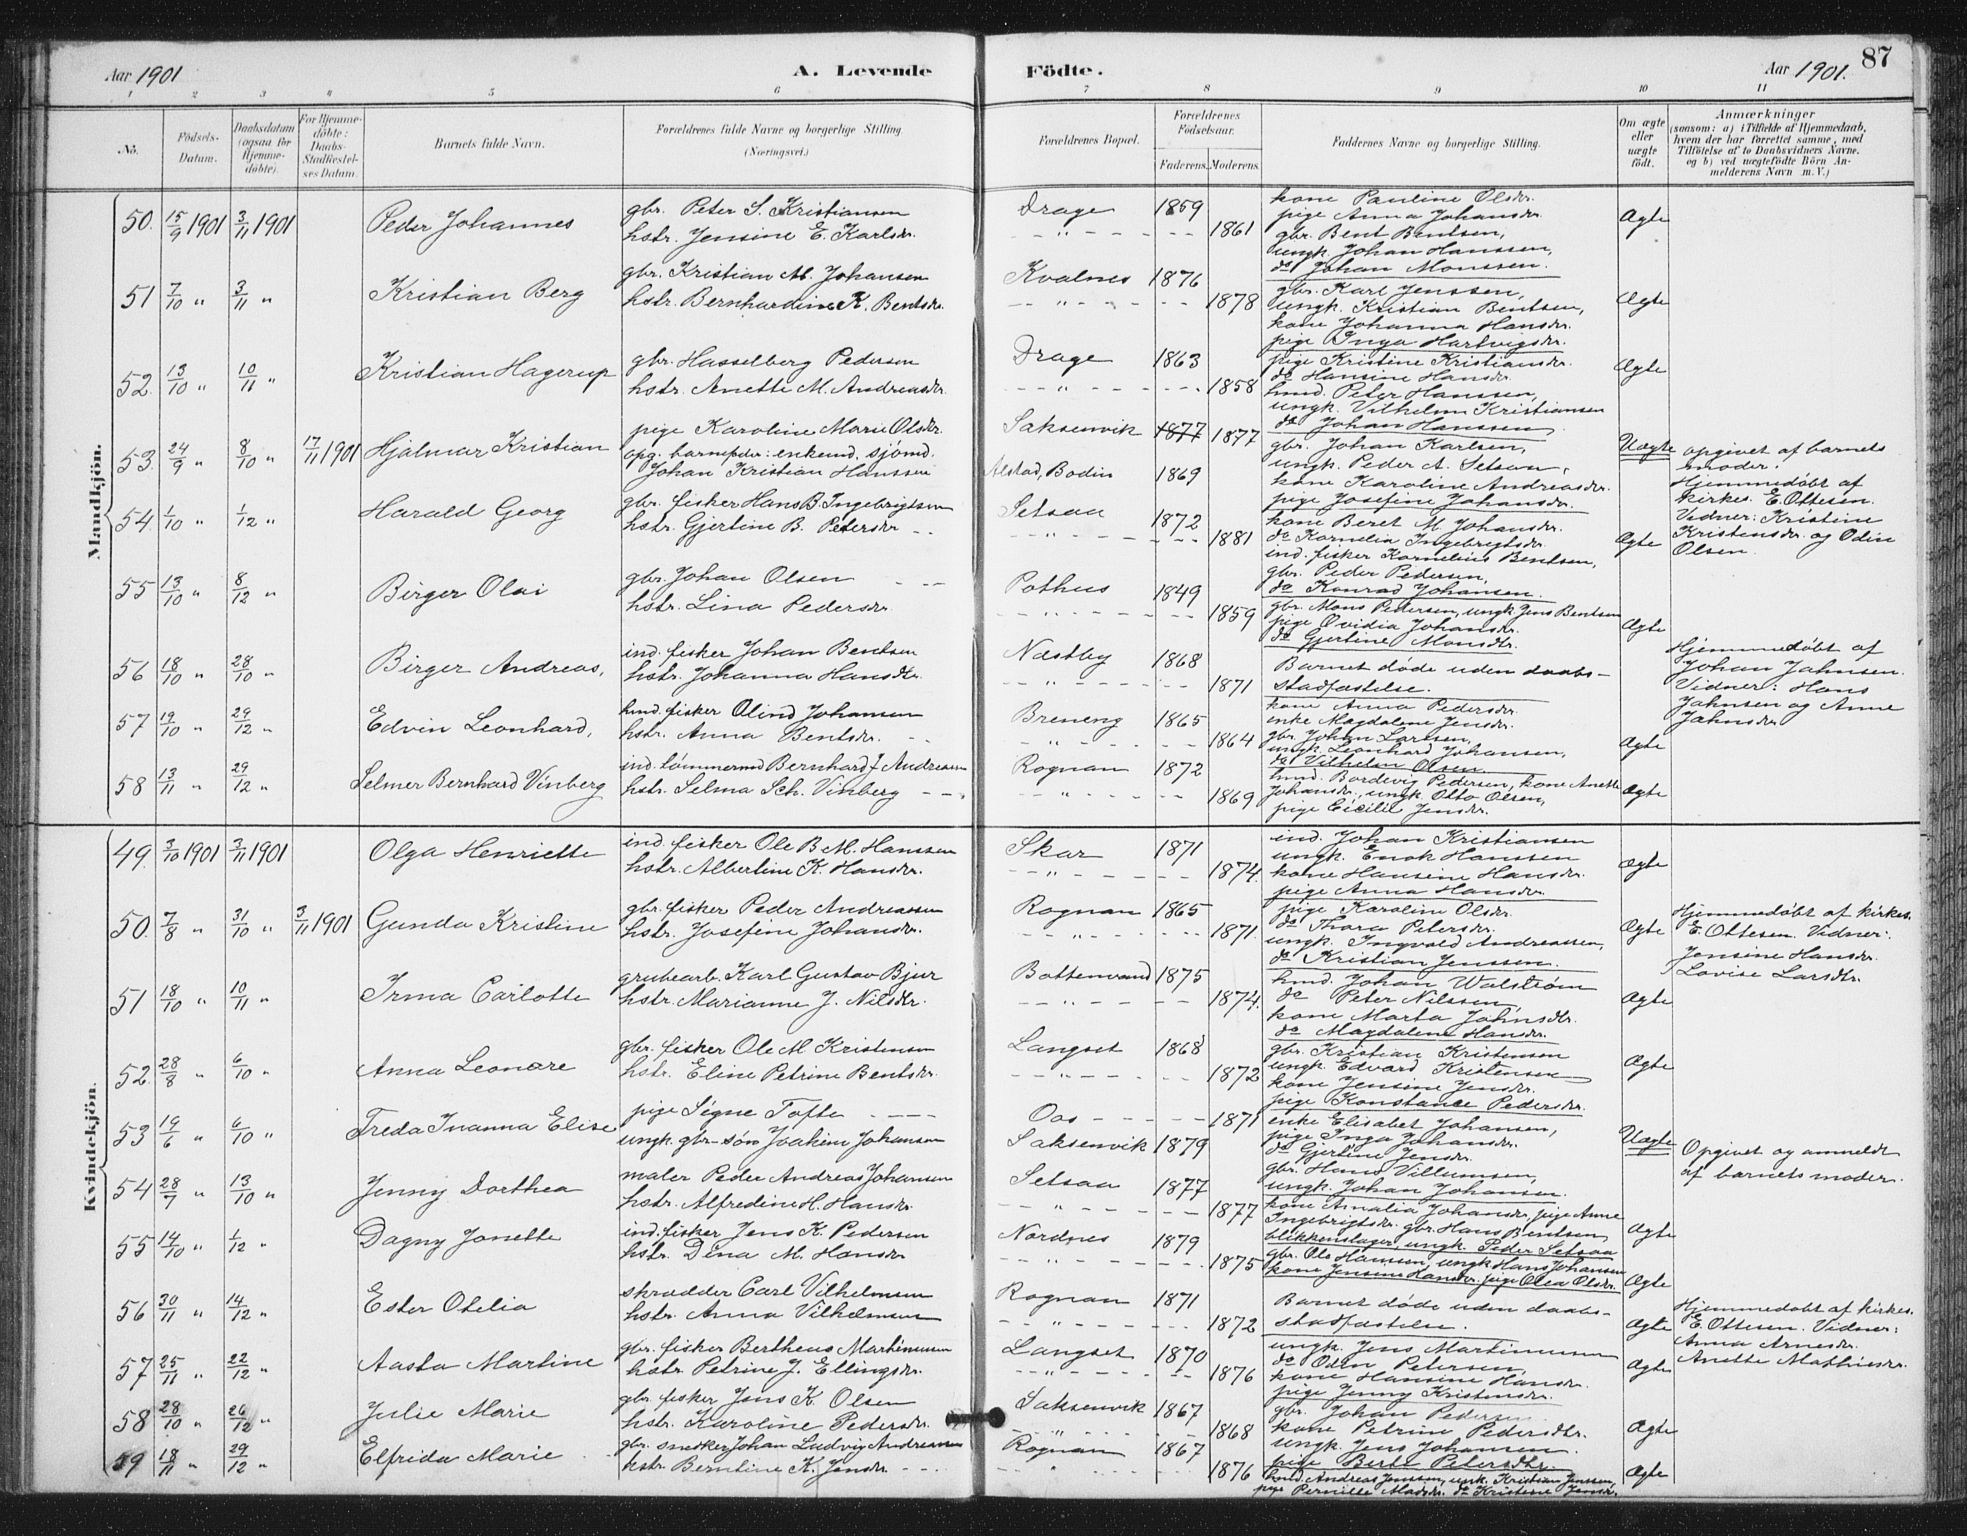 Aar 1901
A. Levende
Födte.
Aar 1901.
87
1 2 3 4 5 6 7 8 9 10 11
No.
Födsels-
Datum.
Daabsdatum
(ogsaa for
Hjemme-
döbte).
For Hjemme-
döbte:
Daabs-
Stadfæstel-
ses Datum.
Barnets fulde Navn.
Forældrenes fulde Navne og borgerlige Stilling
(Næringsvei.)
Forældrenes Bopæl.
Forældrenes
Födselsaar.
Faderens.
Moderens.
Faddernes Navne og borgerlige Stilling.
Om ægte
eller
uægte
födt.
Anmærkninger
(saasom: a) i Tilfælde af Hjemmedaab,
hvem der har forrettet samme, med
Tilföielse af to Daabsvidners Navne.
og b) ved uægtefödte Börn An-
melderens Navn m. V.)
Mandkjön.
50. 15/9 1901 3/11 1901 Peder Johannes
gbr. Peter S. Kristiansen
hstr. Jensine E. Karlsdr.
Drage 1859
1861
kone Pauline Olsdr.
pige Anna Johansdr.
gbr. Bent Bentsen,
ungk. Johan Hanssen,
do Johan Monssen.
Ægte
51 7/10 " 3/11 " Kristian Berg
gbr. Kristian M. Johansen
hstr. Bernhardine K. Bentsdr.
Kvalnes 1876
1878
gbr. Karl Jenssen,
ungk. Kristian Bentsen,
kone Johanna Hansdr.
pige Inga Hartvigsdr.
Ægte
52. 13/10 " 10/11 " Kristian Hagerup
gbr. Hasselberg Pedersen
hstr. Anette M. Andreasdr.
Drage 1863
1858
pige Kristine Kristiansdr.
do Hansine Hansdr.
hmd. Peter Hanssen,
ungk. Vilhelm Kristiansen
do Johan Hanssen
Ægte
53. 24/9 " 8/10 " 17/11 1901 Hjalmar Kristian
pige Karoline Marie Olsdr.
opg. barnefader: enkemd. sjömd.
Johan Kristian Hanssen
Saksenvik 1877 1877
Alstad, Bodin 1869
gbr. Johan Karlsen,
ungk. Peder A. Setsaa,
kone Karoline Andreasdr.
pige Josefine Johansdr.
Uægte
opgivet af barnets
moder.
Hjemmedøbt af
kirkes. E. Ottesen.
Vidner: Kristine
Kristensdr. og Odin
Olsen
54. 1/10 " 1/12 " Harald Georg
gbr. fisker Hans B. Ingebrigtsen
hstr. Gjertine B. Petersdr.
Setsaa 1872
1881
kone Beret M. Johansdr.
do Kornelia Ingebrigtsdr.
ind. fisker Kornelius Bentsen,
gbr. Peder Pedersen,
do Konrad Johansen.
Ægte
55 13/10 " 8/12 " Birger Olai
gbr. Johan Olsen
hstr. Lina Pedersdr.
Pothus 1849
1859
gbr. Mons Pedersen, ungk. Jens Bentsen
pige Ovidia Johansdr.
do Gjertine Monsdtr.
Ægte
56 18/10 " 28/10 " Birger Andreas,
ind. fisker Johan Bentsen
hstr. Johanna Hansdtr.
Næstby 1868
1871
Barnet døde uden daabs-
stadfæstelse.
Hjemmedøbt af
Johan Jahnsen.
Vidner: Hans
Jahnsen og Anne
Jahnsdr
57 19/10 " 29/12 " Edvin Leonhard,
hmd. fisker Olind Johansen
hstr. Anna Bentsdr.
Breneng 1865
1864
kone Anna Pedersdr.
enke Magdalene Jensdr.
gbr. Johan Larssen,
ungk. Leonhard Johansen,
do Vilhelm Olsen
Ægte
58 13/11 " 29/12 " Selmer Bernhard Vinberg
ind. tømmermd Bernhard J Andreasen
hstr. Selma Sch. Vinberg
Rognan 1872
1869
hmd. Bordevig Pedersen, kone Anette
Johansdr., ungk. Otto Olsen,
pige Cecilie Jensdr.
Ægte
Kvindekjön.
49. 3/10 1901 3/11 1901 Olga Henriette
ind. fisker Ole B. M. Hanssen
hstr. Albertine K. Hansdr.
Skar 1871
1874.
ind. Johan Kristiansen
ungk. Enok Hanssen
kone Hansine Hansdr.
pige Anna Hansdr.
Ægte
50. 7/8 " 31/10 " 3/11 1901 Gunda Kristine
gbr. fisker Peder Andreassen
hstr. Josefine Johansdr.
Rognan 1865
1871.
pige Karoline Olsdr.
do Thora Petersdr.
ungk. Ingvald Andreassen,
do Kristian Jenssen.
Ægte
Hjemmedøbt af kirkes.
E. Ottesen. Vidner:
Jensine Hansdr.
Lovise Larsdtr.
51 18/10 " 10/11 " Irma Carlotte
grubearb. Karl Gustav Bjur
hstr. Marianne J. Nilsdtr.
Bottenvand 1875
1874.
hmd. Johan Walstrøm
do Peter Nilssen
kone Marta Johnsdtr.
do Magdalene Hansdr.
Ægte
52. 28/8 " 6/10 " Anna Leonore
gbr. fisker Ole M. Kristensen
hstr. Eline Petrine Bentsdr.
Langset 1868
1872
gbr. Kristian Kristensen
ungk. Edvard Kristensen
kone Jensine Jensdr.
pige Konstance Pedersdr.
Ægte
53 19/6 " 6/10 " Freda Inanna Elise
pige Signe Tofte
ungk. gbr-søn Joakim Johansen
Oos 1871
Saksenvik 1879
enke Elisabet Johansen,
pige Inga Johansdr.
do Gjertine Jensdr.
gbr. Hans Villumsen,
ungk. Johan Johansen.
Uægte
Opgivet og anmeldt
af barnets moder.
54 28/7 " 13/10 " Jenny Dorthea
maler Peder Andreas Johansen
hstr. Alfredine H. Hansdr.
Setsaa 1877
1877
kone Amalia Johansdr. pige Anne
Ingebrigtsdr. gbr. Hans Bentsen,
blikkenslager, ungk. Peder Setsaa
Ægte
55 14/10 " 1/12 " Dagny Jonette
ind. fisker Jens K. Pedersen
hstr. Dina M. Hansdr
Nordnes 1879
1875
gbr. Ole Hansen, ungk. Hans Johansen
kone Jensine Hansdr. pige Olea Olsdr.
Ægte
56 30/11 " 14/12 " Ester Otelia
skrædder Carl Vilhelmsen
hstr. Anna Vilhelmsen
Rognan 1871
1872
Barnet døde uden daabs-
stadfæstelse.
Ægte
Hjemmedøbt af kirkes.
E. Ottesen. Vidner:
Anna Arnesdr.
Anette Mathiesdr.
57 25/11 " 22/12 " Aasta Martine
gbr. fisker Bertheus Martinussen
hstr. Petrine J. Ellingsdr.
Langset 1870
1876
ungk. Jens Martinussen
do Odin Petersen,
kone Hansine Hansdr.
pige Jenny Kristensdr.
Ægte
58 28/10 " 26/12 " Julie Marie
gbr. fisker Jens K. Olsen
hstr. Karoline Pedersdr.
Saksenvik 1867
1868
gbr. Johan Pedersen
kone Petrine Pedersdtr.
ungk. Jens Johansen.
pige Berte Petersdtr.
Ægte
59 18/11 " 29/12 " Elfrida Marie
gbr. snedker Johan Ludvig Andreassen
hstr. Berntine K. Jensdr.
Rognan 1867
1876
hmd Andreas Jenssen, ungk. Kristian Jenssen,
pige Pernille Madsdr. do Kristine Jensdr.
Ægte